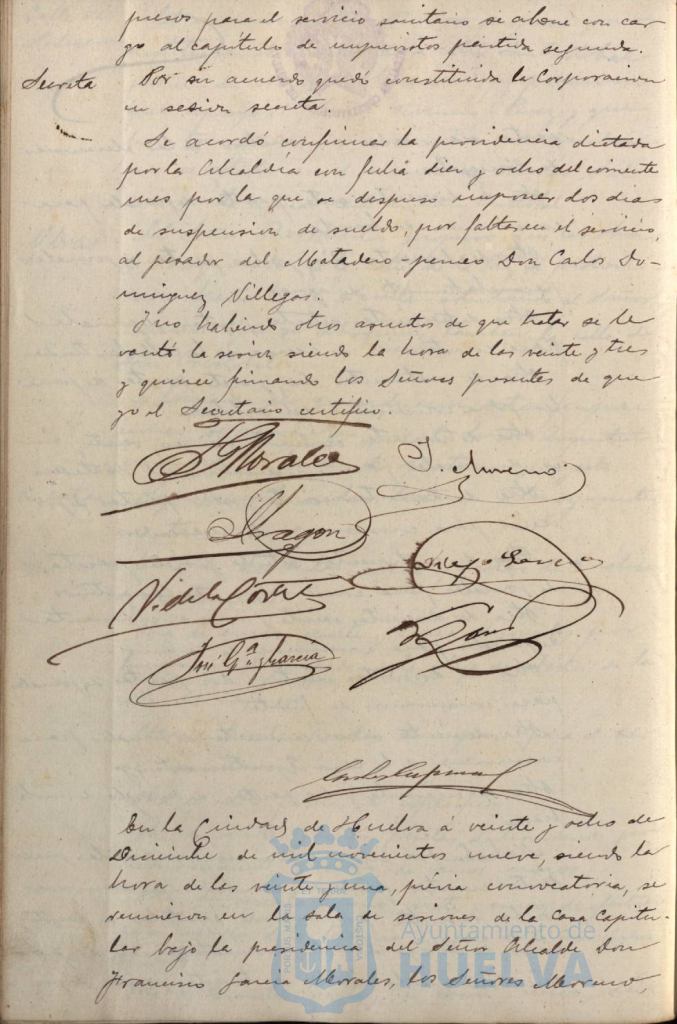 presos para el servicio sanitario se abone con car
go al capítulo de imprevistos partida segunda.
Secreta
Por su acuerdo quedó constituida la Corporacion
en sesion secreta.
Se acordó confirmar la providencia dictada
por la Alcaldía con fecha diez y ocho del corriente
mes por la que se dispuso imponer dos dias
de suspension de sueldo, por faltas en el servicio,
al pesador del Matadero-perneo Don Carlos Do-
minguez Villegas.
Y no habiendo otros asuntos de que tratar se le
vantó la sesion siendo la hora de las veinte y tres
y quince firmando los Señores presentes de que
yo el Secretario certifico.
Morales
J. Moreno
Aragon
Diego Garcia
V. de la Corte
José Gª y Garcia
En la Ciudad de Huelva á veinte y ocho de
Diciembre de mil novecientos nueve, siendo la
hora de las veinte y una, prévia convocatoria, se
reunieron en la sala de sesiones de la Casa Capitu-
lar bajo la presidencia del Señor Alcalde Don
Francisco Garcia Morales, los Señores Moreno,
Ayuntamiento de
HUELVA